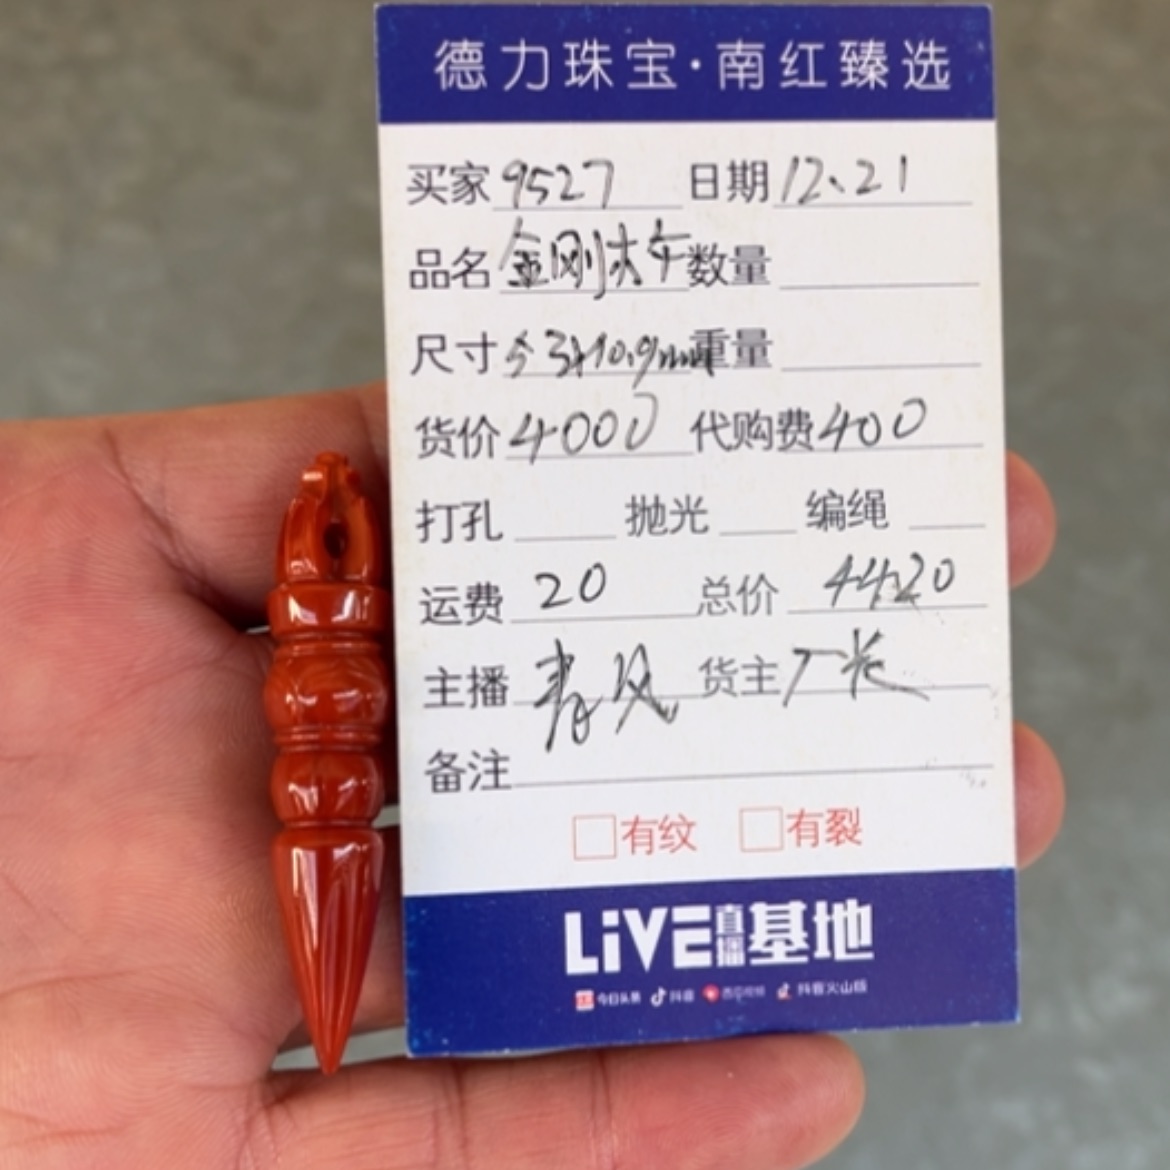 德力珠宝·南红臻选
买家 9527 日期 12.21
品名 金刚杵 数量
尺寸 53x10.9mm 重量
货价 4000 代购费 400
打孔 抛光 编绳
运费 20 总价 4420
主播 春风 货主
备注
有纹 有裂
LiVE直播基地
今日头条 抖音 西瓜视频 抖音火山版